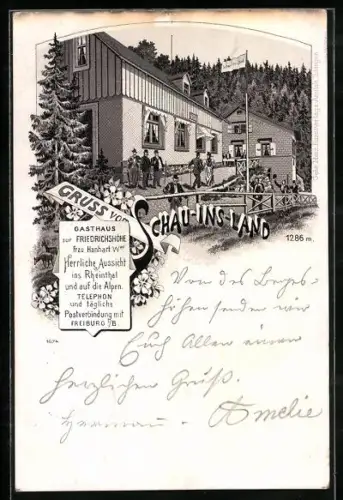 GRUSS VOM
SCHAU-INS-LAND
1286 m.
GASTHAUS
zur FRIEDRICHSHÖHE
Frau Hanhart Wwe
Herrliche Aussicht
ins Rheinthal
und auf die Alpen.
TELEPHON
und tägliche
Postverbindung mit
FREIBURG i/B.
Von des Berges-
höhen senden wir
Euch Allen einen
herzlichen Gruß.
Herman. Amelie